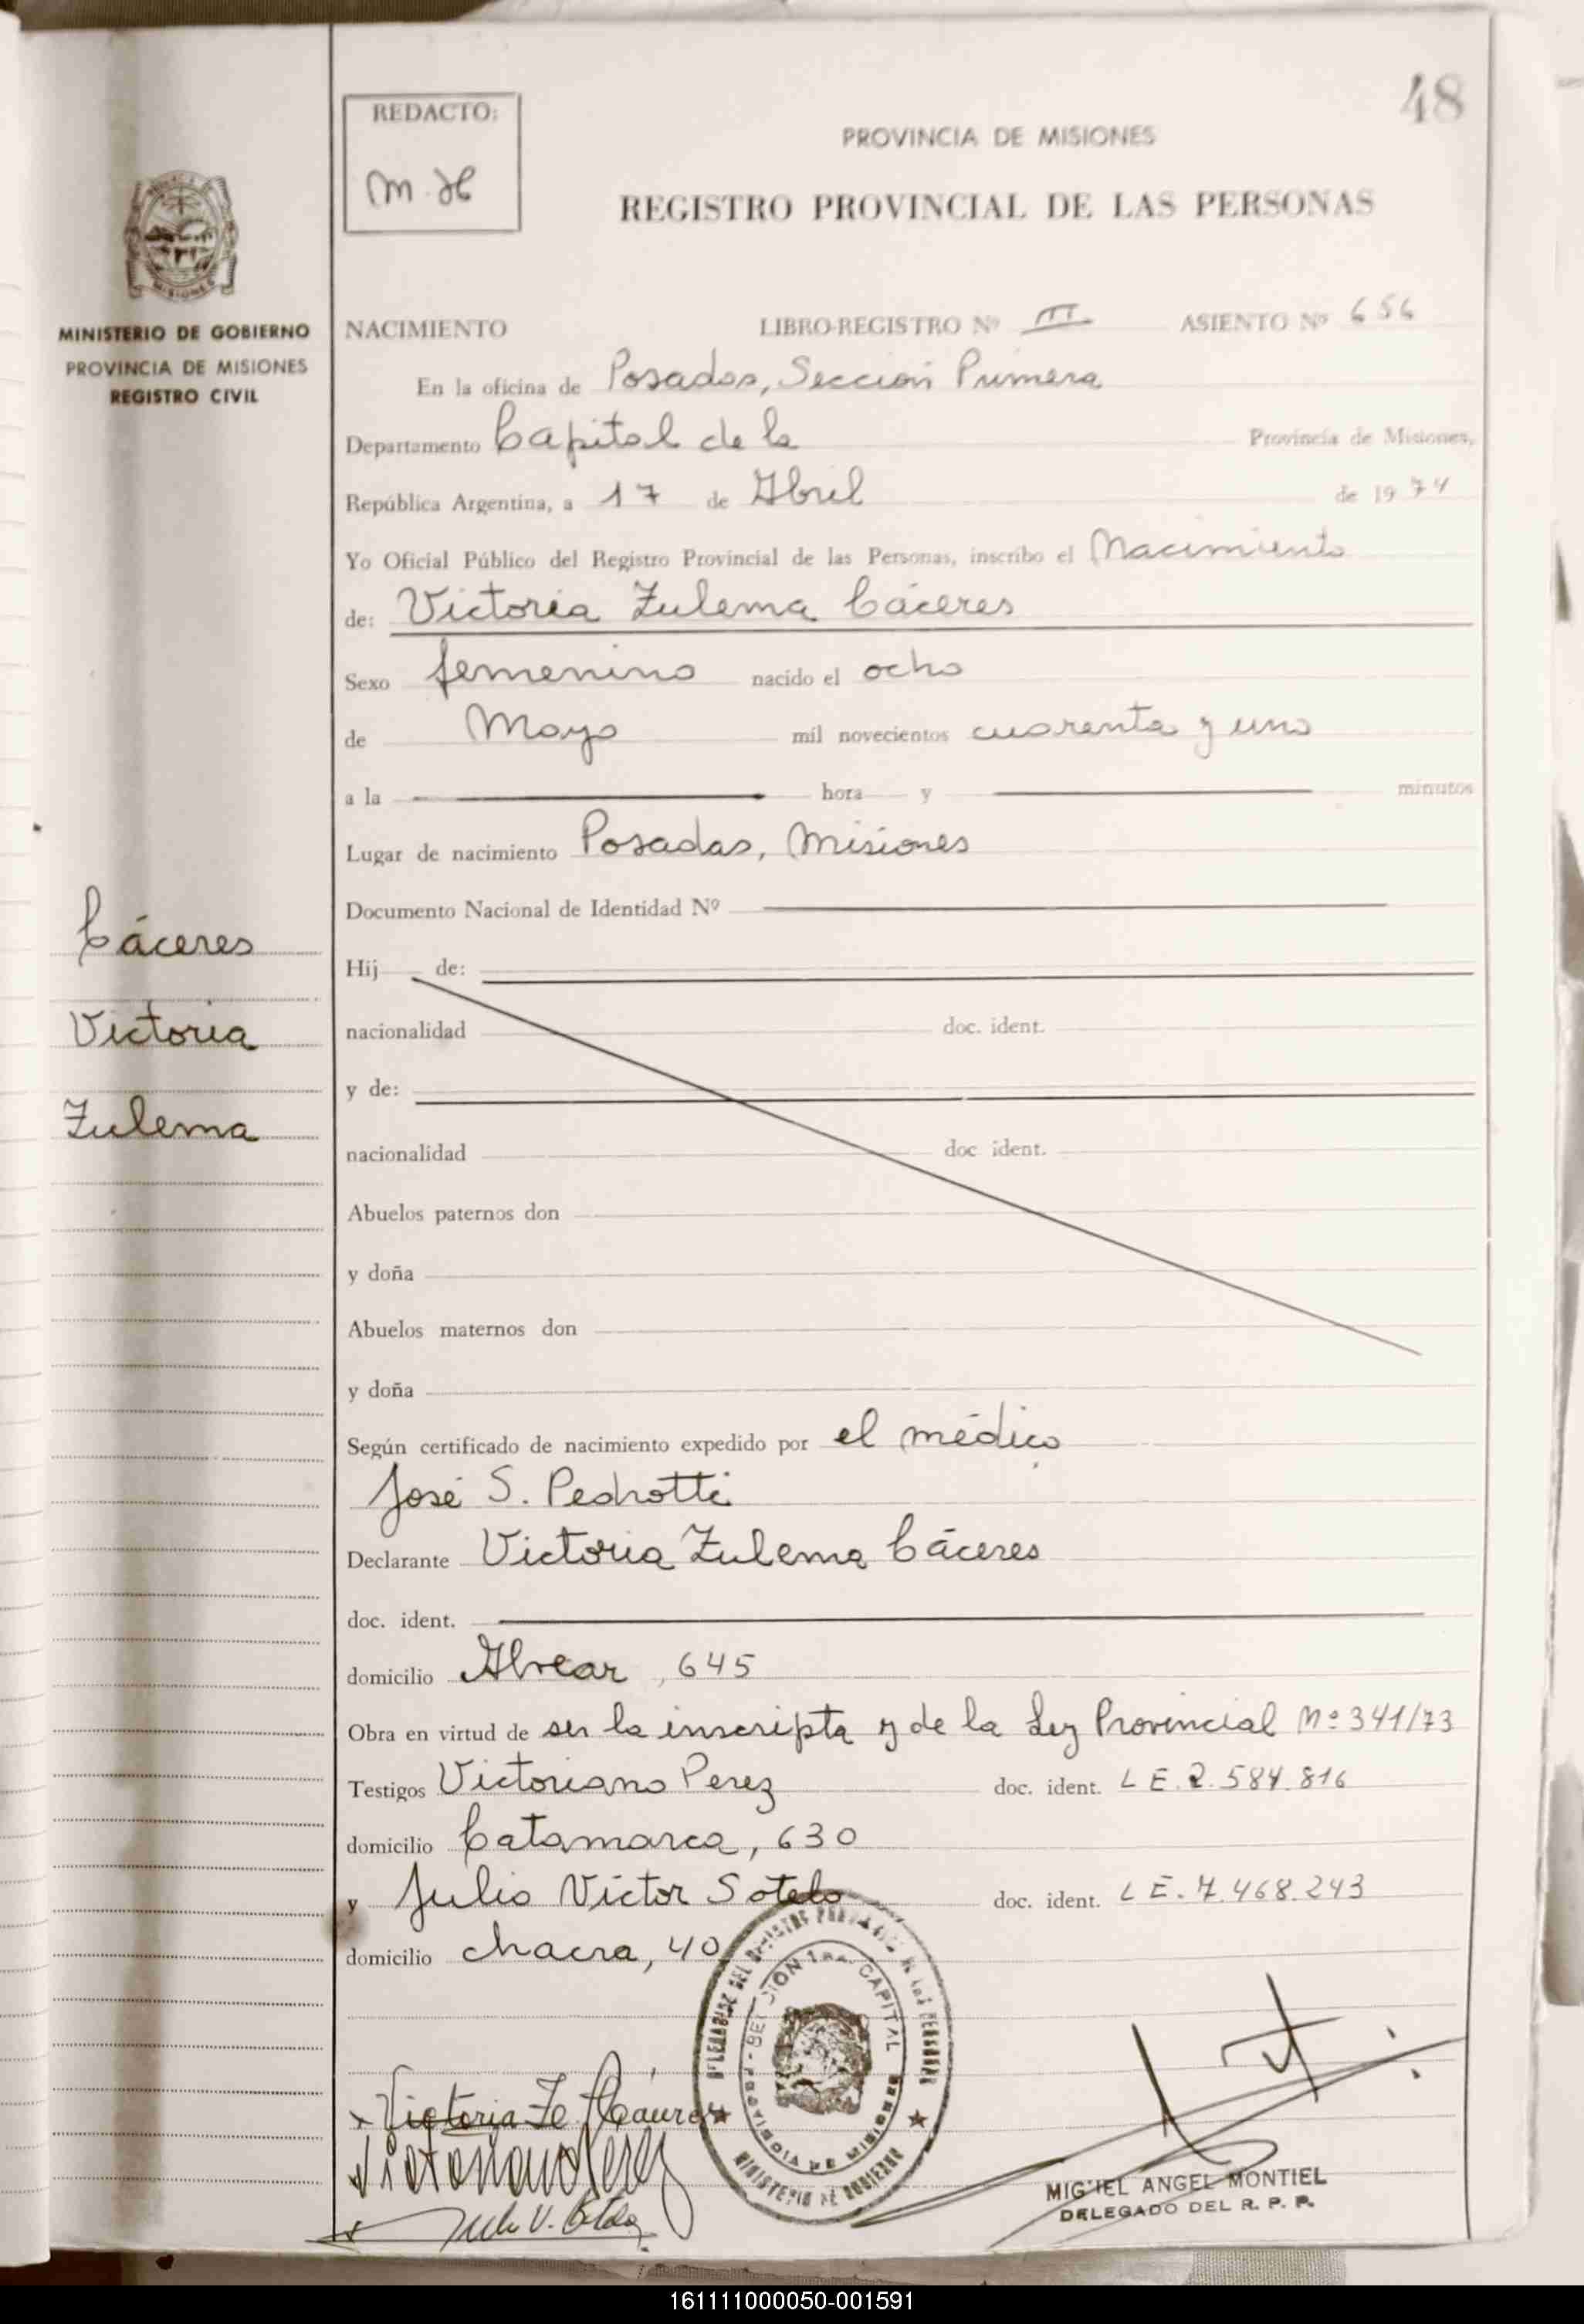 48
REDACTO:
M. H
PROVINCIA DE MISIONES
REGISTRO PROVINCIAL DE LAS PERSONAS
MISIONES
MINISTERIO DE GOBIERNO
PROVINCIA DE MISIONES
REGISTRO CIVIL
NACIMIENTO LIBRO-REGISTRO Nº III ASIENTO Nº 656
En la oficina de Posadas, Sección Primera
Departamento Capital de la Provincia de Misiones,
República Argentina, a 17 de Abril de 1974
Yo Oficial Público del Registro Provincial de las Personas, inscribo el Nacimiento
de: Victoria Zulema Cáceres
Sexo femenino nacido el ocho
de Mayo mil novecientos cuarenta y uno
a la hora y minutos
Lugar de nacimiento Posadas, Misiones
Documento Nacional de Identidad Nº
Cáceres
Victoria
Zulema
Hij de:
nacionalidad doc. ident.
y de:
nacionalidad doc. ident.
Abuelos paternos don
y doña
Abuelos maternos don
y doña
Según certificado de nacimiento expedido por el médico
José S. Pedrotti
Declarante Victoria Zulema Cáceres
doc. ident.
domicilio Alvear, 645
Obra en virtud de ser la inscripta y de la Ley Provincial Nº 341/73
Testigos Victoriano Perez doc. ident. L E. 2.584.816
domicilio Catamarca, 630
y Julio Victor Sotelo doc. ident. L E. 7.468.243
domicilio chacra, 40
SECCION 1ra. CAPITAL
PROVINCIA DE MISIONES
MINISTERIO DE GOBIERNO
Victoria Z. Cáceres
Victoriano Perez
MIGUEL ANGEL MONTIEL
DELEGADO DEL R. P. P.
161111000050-001591